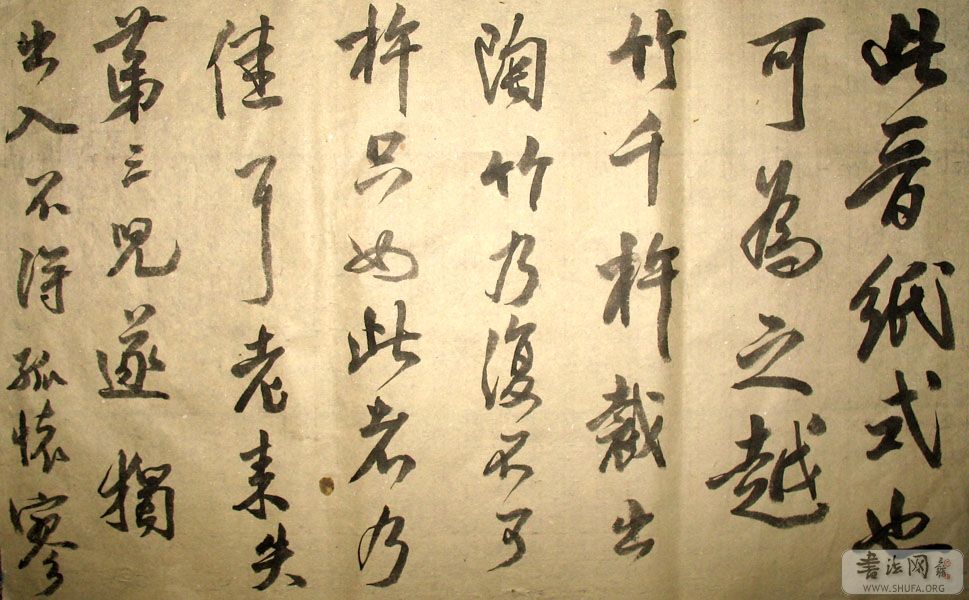 此晋紙式也
可為之越
竹千杵裁出
陶竹乃復不可
杵只如此者乃
佳耳老来失
第三兒遂獨
出入不得孤懷寥
書法网
WWW.SHUFA.ORG